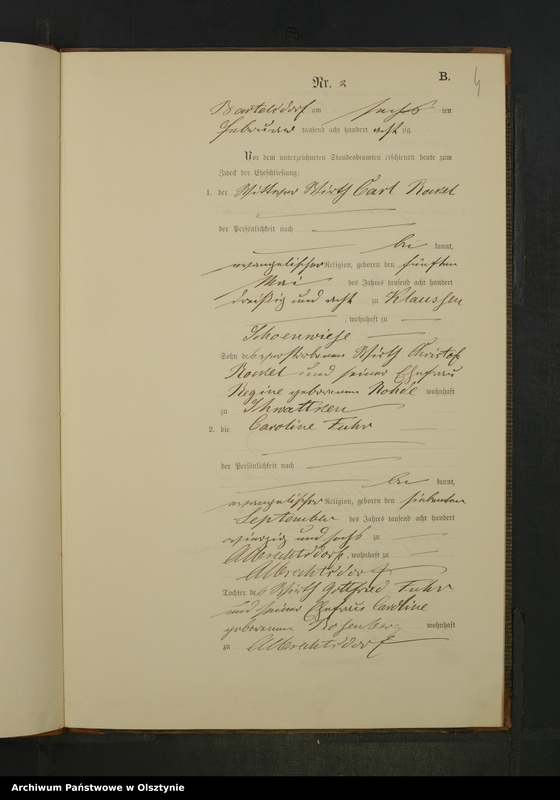 B.
Nr. 2
Bartelsdorf am sechs ten
Februar tausend acht hundert acht zig
Vor dem unterzeichneten Standesbeamten erschienen heute zum
Zweck der Eheschließung:
1. der Wittwer Wirth Carl Roesel
der Persönlichkeit nach
be kannt,
evangelischer Religion, geboren den fünften
Mai des Jahres tausend acht hundert
dreißig und acht zu Klaussen
, wohnhaft zu
Schoenwiese
Sohn des verstorbenen Wirth Christof
Roesel und seiner Ehefrau
Regine geborenen Rohde wohnhaft
zu
2. die Caroline Fuhr
der Persönlichkeit nach
be kannt,
evangelischer Religion, geboren den siebenten
September des Jahres tausend acht hundert
vierzig und sechs zu
Albrechtsdorf, wohnhaft zu
Albrechtsdorf
Tochter des Wirth Gottfried Fuhr
und seiner Ehefrau Caroline
geborenen Rosenberg wohnhaft
zu Albrechtsdorf
Archiwum Państwowe w Olsztynie